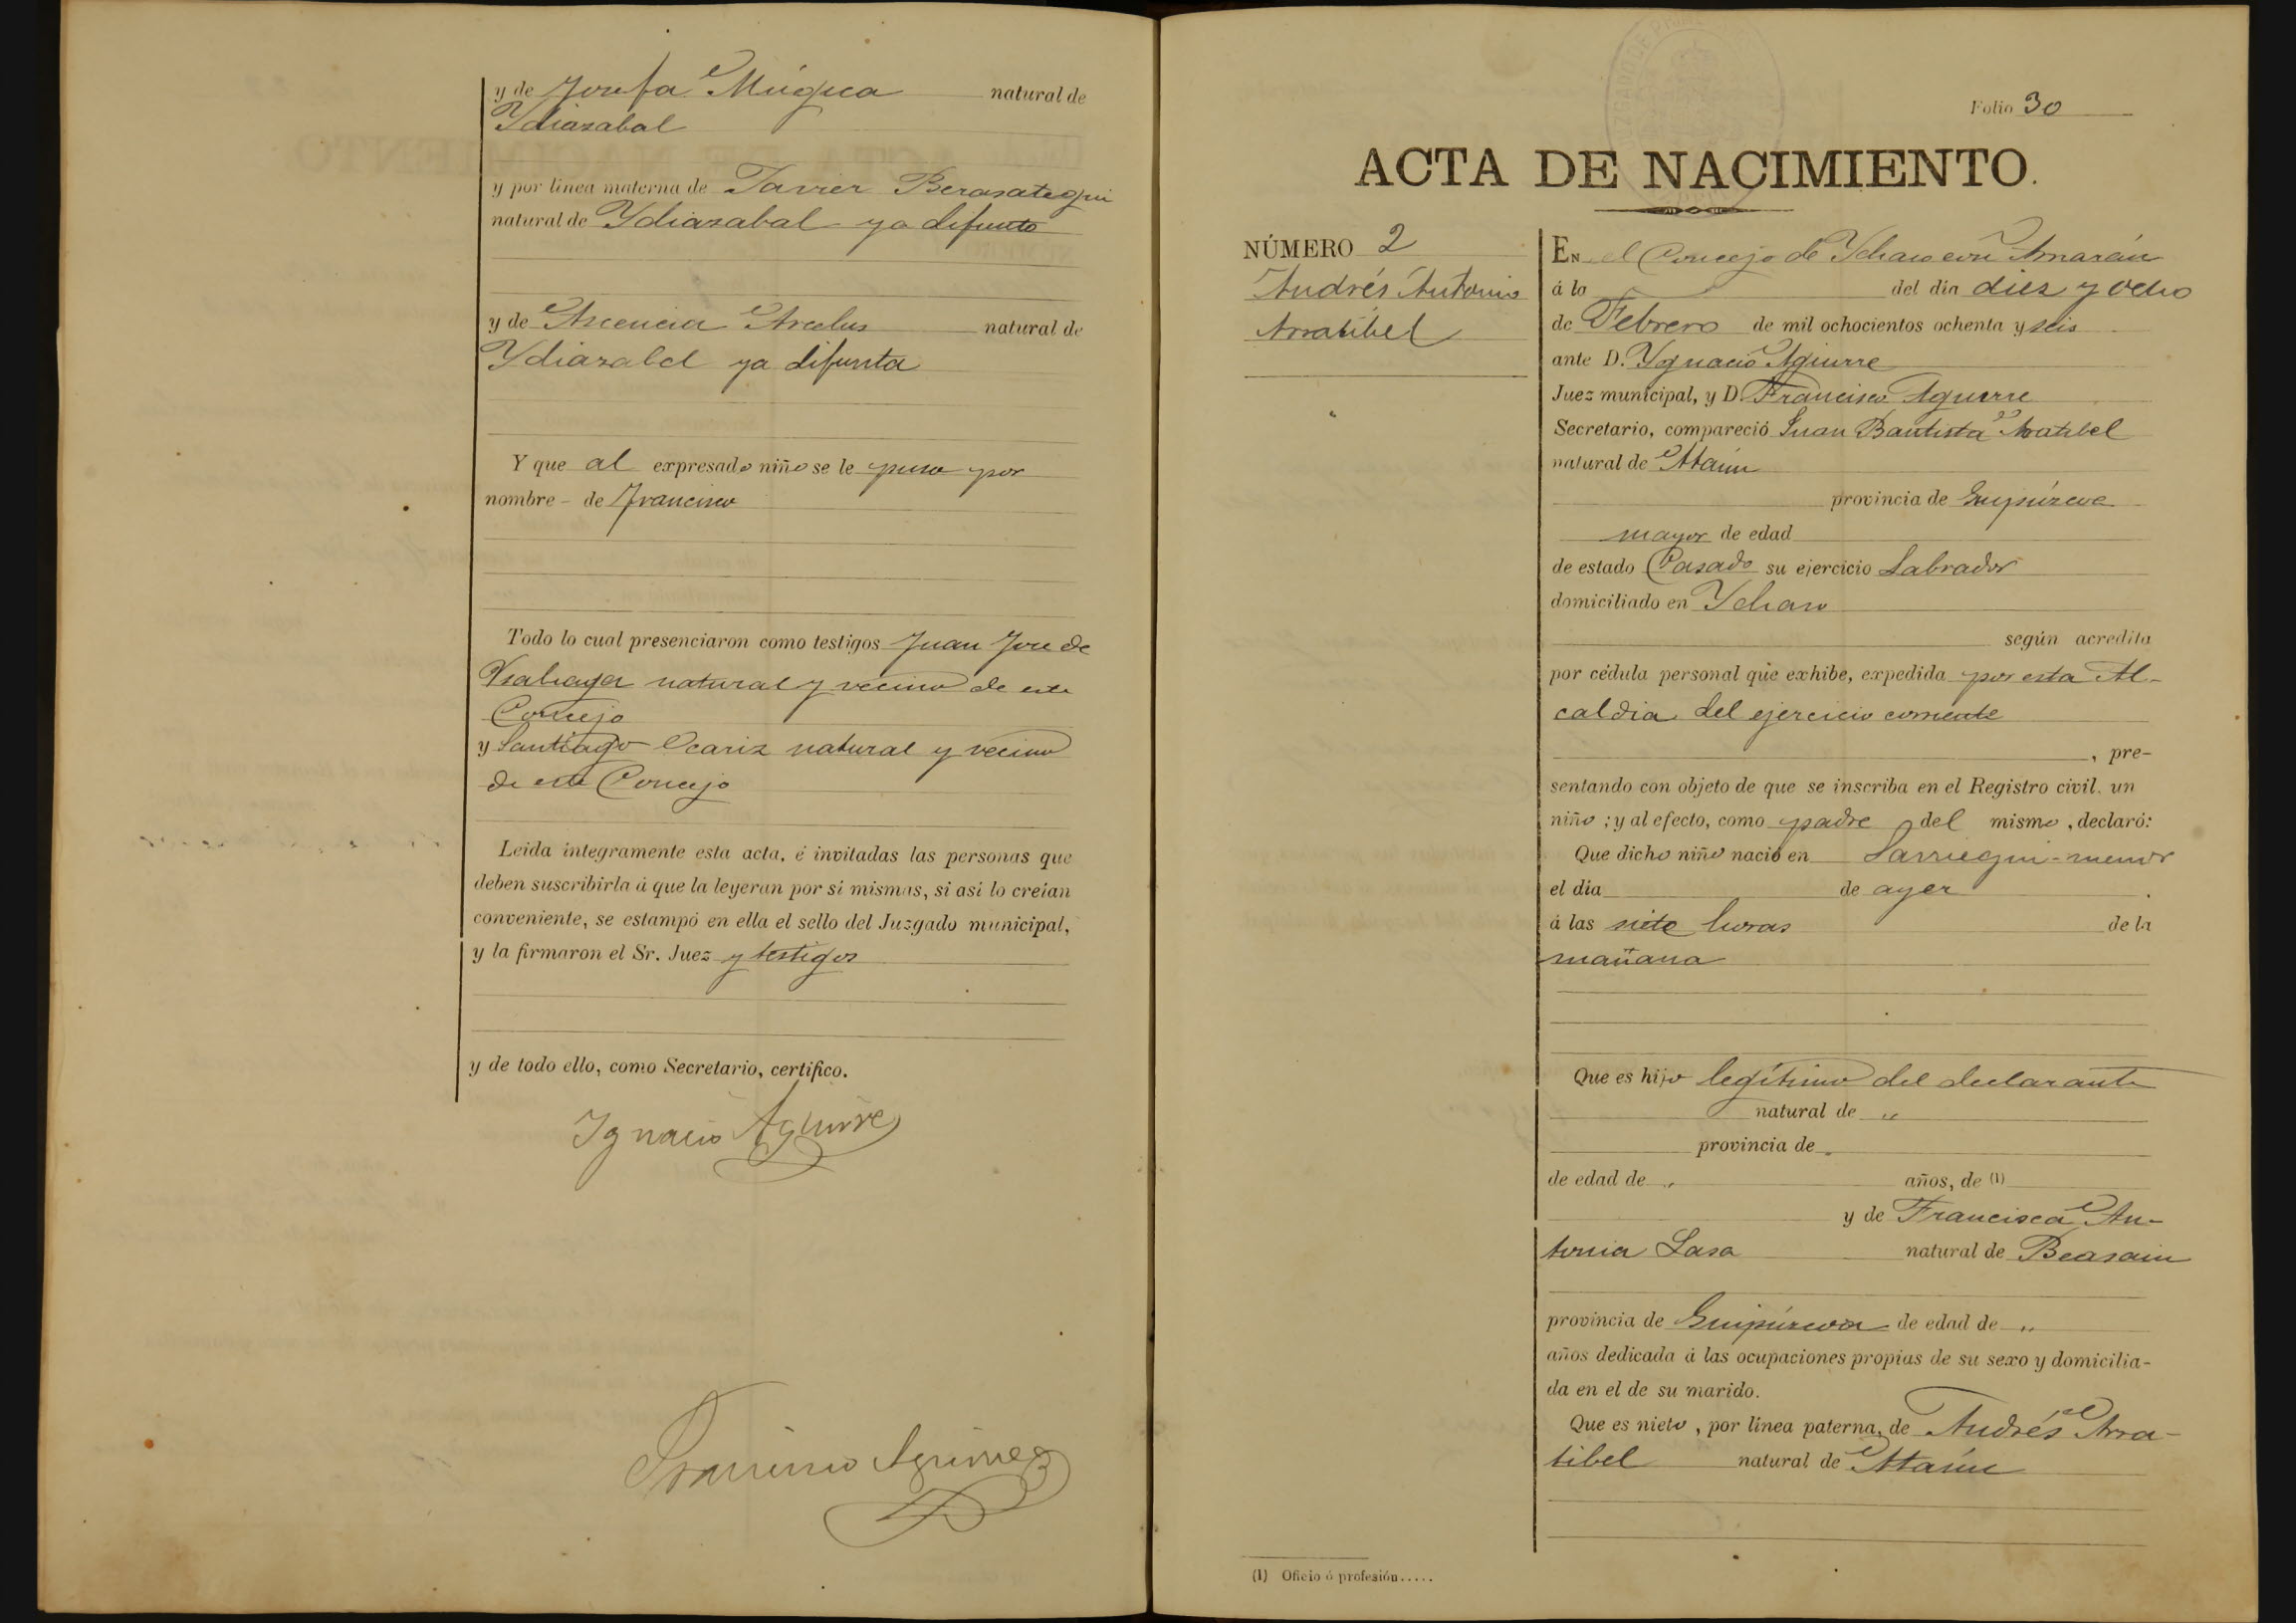 y de Josefa Múgica natural de
Ydiazabal
y por línea materna de Javier Berasategui
natural de Ydiazabal ya difunto
y de Ascencia Arcelus natural de
Ydiazabal ya difunta
Y que al expresado niño se le puso por
nombre - de Francisco
Todo lo cual presenciaron como testigos Juan Jose de
natural y vecino de este
Concejo
y Santiago Ocariz natural y vecino
de este Concejo
Leida integramente esta acta, é invitadas las personas que
deben suscribirla á que la leyeran por sí mismas, si así lo creían
conveniente, se estampó en ella el sello del Juzgado municipal,
y la firmaron el Sr. Juez y testigos
y de todo ello, como Secretario, certifico.
Ignacio Aguirre
Francisco Aguirre
Folio 30
ACTA DE NACIMIENTO.
NÚMERO 2
Andrés Antonio
Arratibel
EN el Concejo de Ychaso con Arnarán
á la del dia diez y ocho
de Febrero de mil ochocientos ochenta y seis
ante D. Ygnacio Aguirre
Juez municipal, y D. Francisco Aguirre
Secretario, compareció Juan Bautista Aratibel
natural de Ataun
provincia de Guipúzcoa
mayor de edad
de estado Casado su ejercicio Labrador
domiciliado en Ychaso
según acredita
por cédula personal que exhibe, expedida por esta Al-
caldia del ejercicio corriente
, pre-
sentando con objeto de que se inscriba en el Registro civil, un
niño ; y al efecto, como padre del mismo, declaró:
Que dicho niño nació en Sarriegui-menor
el dia de ayer
á las siete horas de la
mañana
Que es hijo legítimo del declarante
natural de "
provincia de "
de edad de " años, de (1)
y de Francisca An-
tonia Lasa natural de Beasain
provincia de Guipúzcoa de edad de "
años dedicada á las ocupaciones propias de su sexo y domicilia-
da en el de su marido.
Que es nieto, por línea paterna, de Andrés Arra-
tibel natural de Ataun
(1) Oficio ó profesión.....